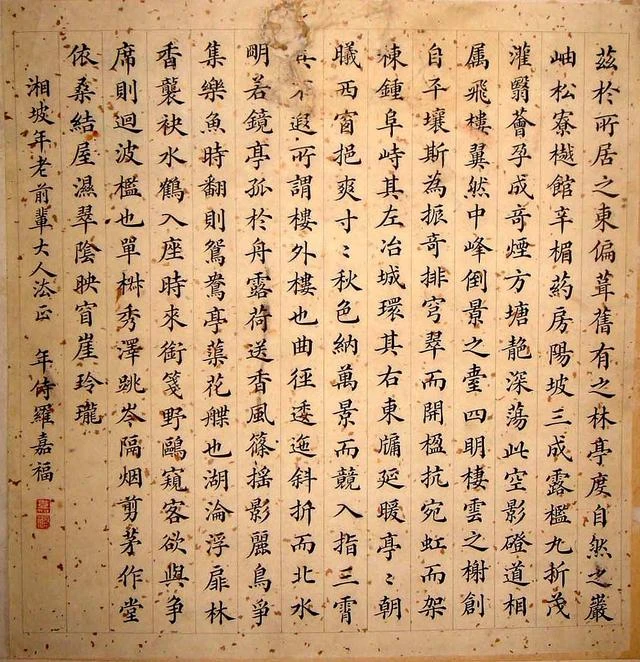 茲於所居之東偏葺舊有之林亭度自然之巖
岫松寮樾館辛楣葯房陽坡三成露檻九折茂
灌翳薈孕成奇煙方塘靘深蕩此空影磴道相
属飛樓翼然中峰倒景之臺四明棲雲之榭創
自平壤斯為振奇排穹翠而開楹抗宛虹而架
棟鍾阜峙其左冶城環其右東牖延暖亭〻朝
曦西窗挹爽寸〻秋色納萬景而競入指三霄
其不遐所謂樓外樓也曲徑逶迤斜折而北水
明若鏡亭孤於舟露荷送香風篠搖影麗鳥爭
集樂魚時翻則鴛鴦亭蕖花艓也湖淪浮扉林
香襲袂水鶴入座時來銜箋野鷗窺客欲與爭
席則迴波檻也單椒秀澤跳岑隔烟剪茅作堂
依桑結屋濕翠陰映窅崖玲瓏
湘坡年老前輩大人法正 年侍羅嘉福